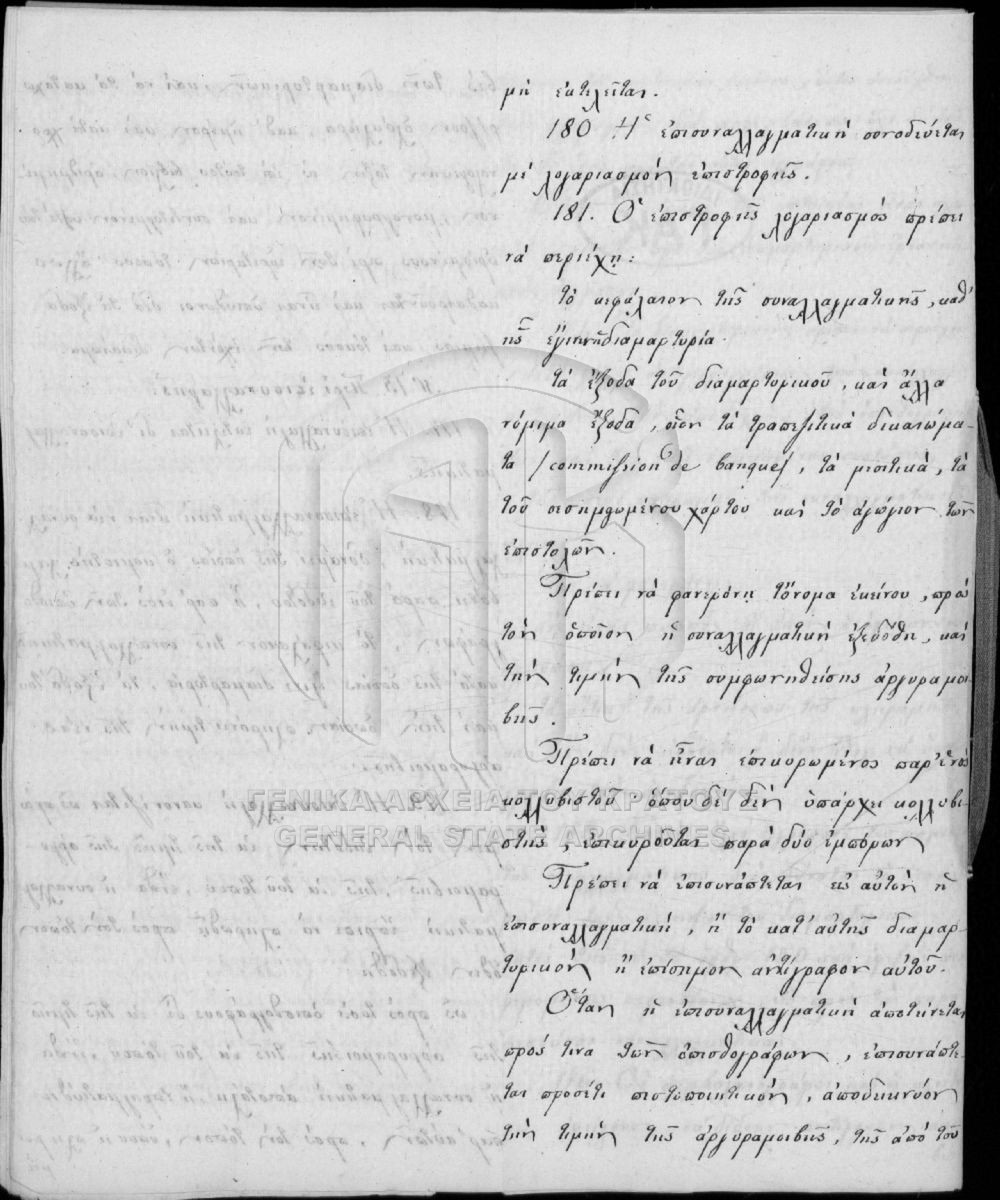 μὴ ἐκτελεῖται.
180 Ἡ ἐπισυναλλαγματικὴ συνοδεύεται
μὲ λογαριασμὸν ἐπιστροφῆς.
181. Ὁ ἐπιστροφῆς λογαριασμὸς πρέπει
νὰ περιέχῃ:
τὸ κεφάλαιον τῆς συναλλαγματικῆς, καθ'
ἧς ἔγινε διαμαρτυρία.
τὰ ἔξοδα τοῦ διαμαρτυρικοῦ, καὶ ἄλλα
νόμιμα ἔξοδα, οἷον τὰ τραπεζιτικὰ δικαιώμα-
τα /commission de banque/, τὰ μεσιτικά, τὰ
τοῦ σεσημειωμένου χάρτου καὶ τὸ ἀγώγιον τῶν
ἐπιστολῶν.
Πρέπει νὰ φανερόνῃ τὄνομα ἐκείνου, πρὸς
τὸν ὁποῖον ἡ συναλλαγματικὴ ἐξεδόθη, καὶ
τὴν τιμὴν τῆς συμφωνηθείσης ἀργυραμοι-
βῆς.
Πρέπει νὰ ἦναι ἐπικυρωμένος παρ' ἑνὸς
κολλυβιστοῦ ὅπου δὲ δὲν ὑπάρχει κολλυβι-
στής, ἐπικυροῦται παρὰ δύο ἐμπόρων
Πρέπει νὰ ἐπισυνάπτεται εἰς αὐτὸν ἡ
ἐπισυναλλαγματική, ἢ τὸ κατ' αὐτῆς διαμαρ-
τυρικὸν ἢ ἐπίσημον ἀντίγραφον αὐτοῦ.
Ὅταν ἡ ἐπισυναλλαγματικὴ ἀποτείνεται
πρός τινα τῶν ὀπισθογράφων, ἐπισυνάπτε-
ται προσέτι πιστοποιητικόν, ἀποδεικνύον
τὴν τιμὴν τῆς ἀργυραμοιβῆς, τῆς ἀπὸ τοῦ
ΓΕΝΙΚΑ ΑΡΧΕΙΑ ΤΟΥ ΚΡΑΤΟΥΣ
GENERAL STATE ARCHIVES